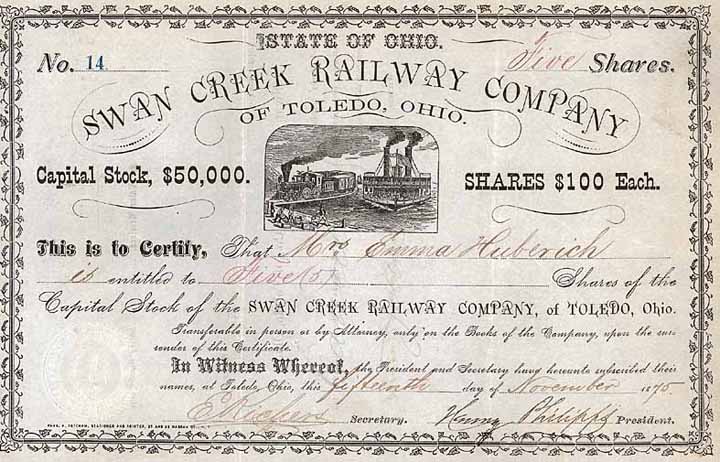 STATE OF OHIO.
No. 14 Five Shares.
SWAN CREEK RAILWAY COMPANY
OF TOLEDO, OHIO.
Capital Stock, $50,000. SHARES $100 Each.
This is to Certify, That Mrs Emma Huberich
is entitled to Five (5) Shares of the
Capital Stock of the SWAN CREEK RAILWAY COMPANY, of TOLEDO, Ohio.
Transferable in person or by Attorney, only on the Books of the Company, upon the sur-
render of this Certificate.
In Witness Whereof, the President and Secretary have hereunto subscribed their
names, at Toledo, Ohio, this fifteenth day of November 1875
Secretary. Henry Philipps President.